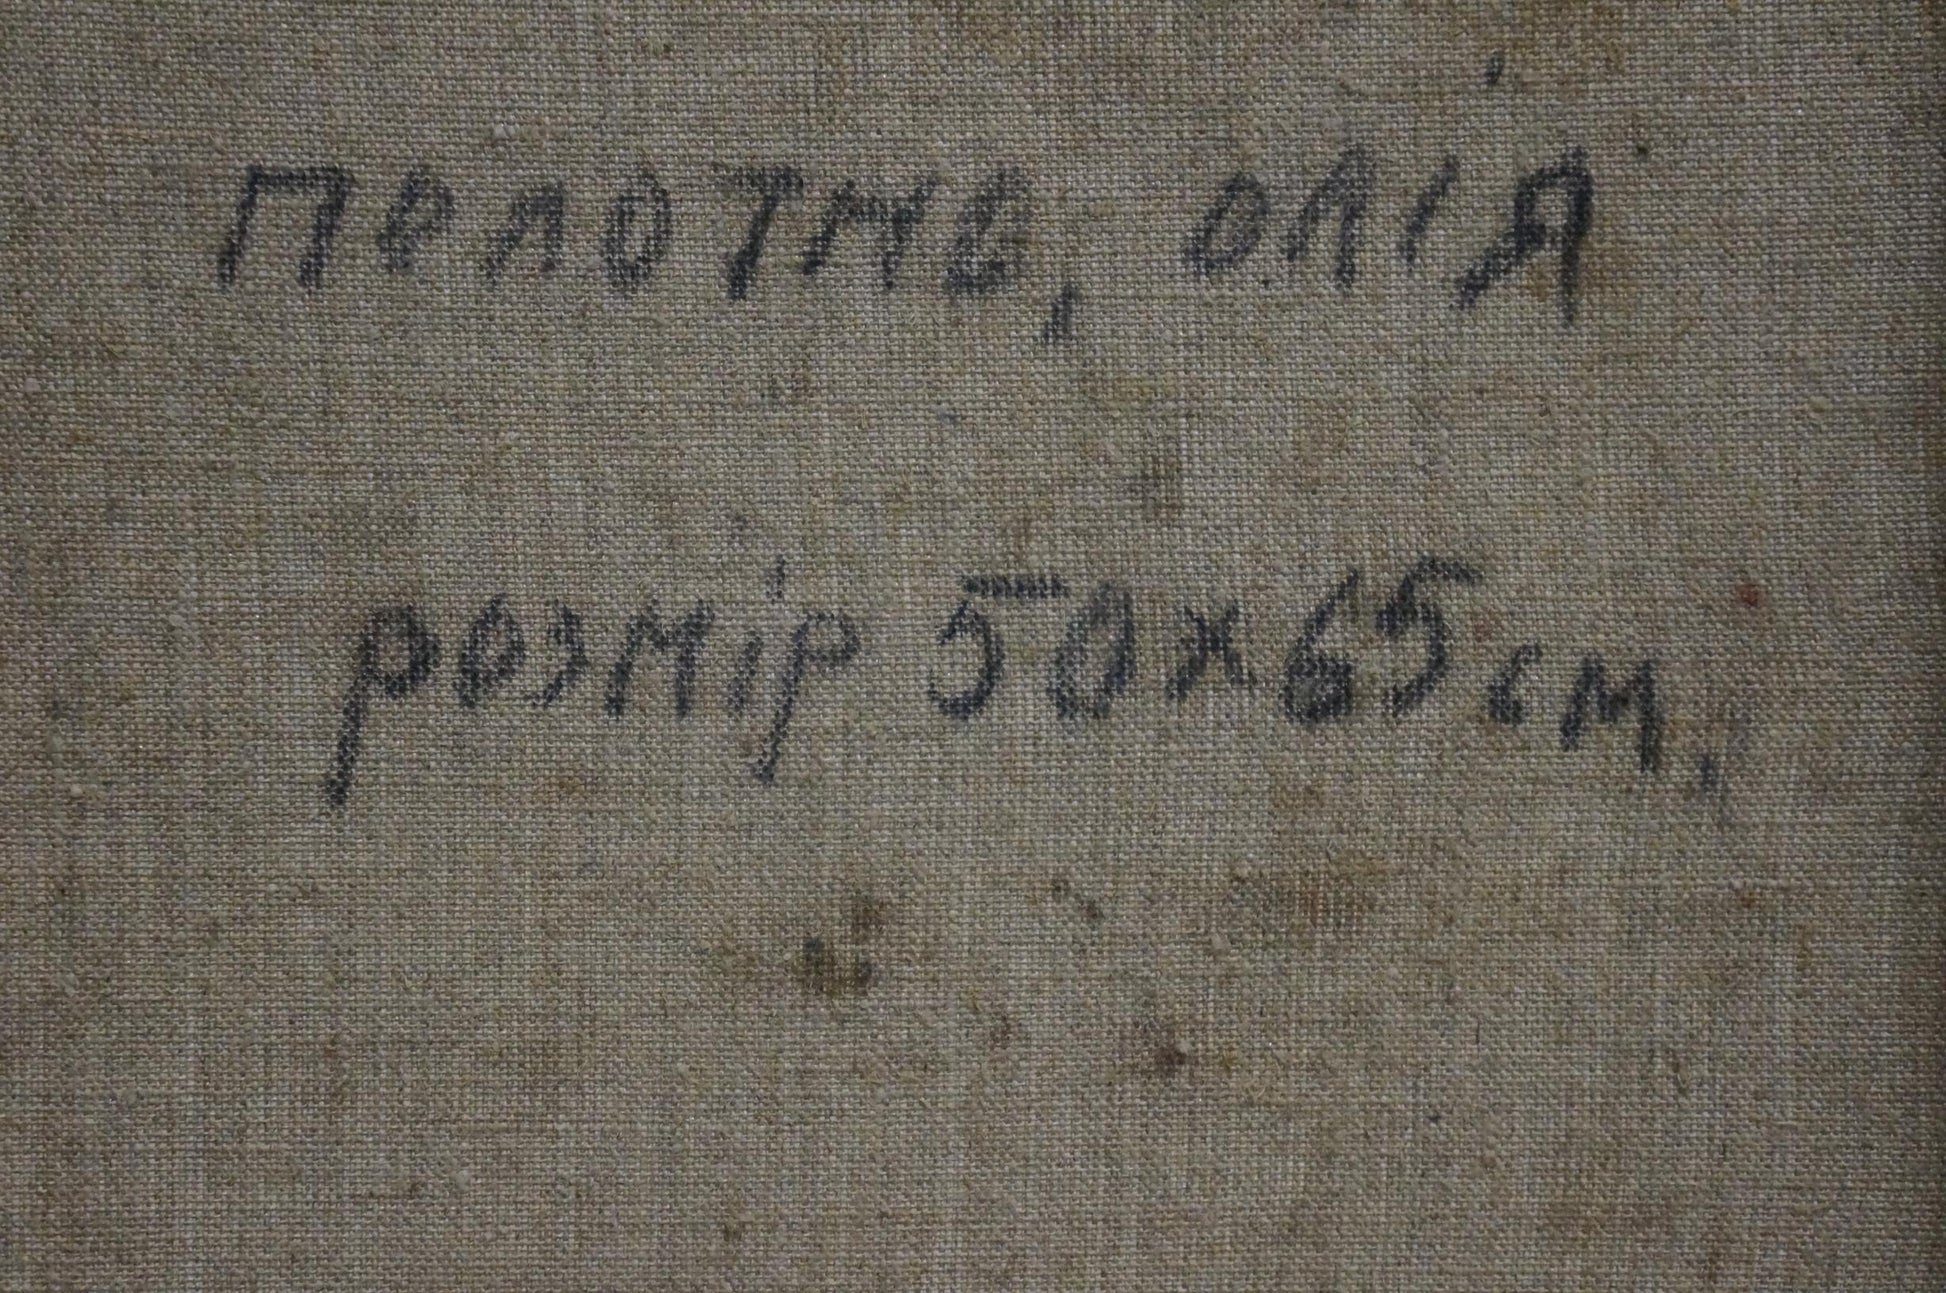 полотно, олія
розмір 50х65см.